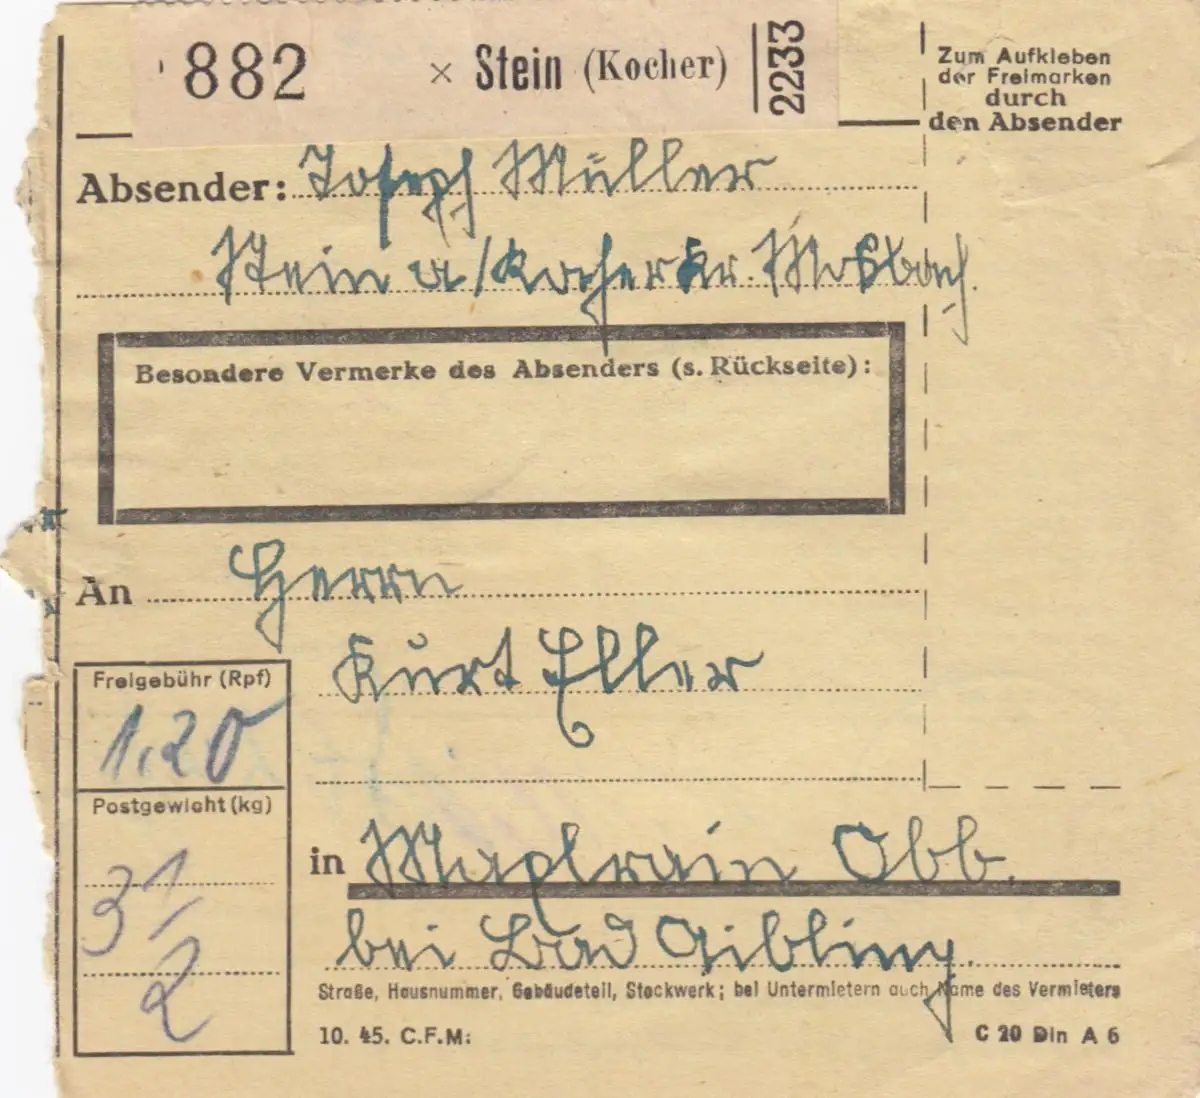 882 × Stein (Kocher) 2233
Zum Aufkleben
der Freimarken
durch
den Absender
Absender: Joseph Müller
Stein a/Kocher Kr. Mosbach.
Besondere Vermerke des Absenders (s. Rückseite):
An Herrn
Kurt Eller
Freigebühr (Rpf)
1,20
Postgewicht (kg)
3 1/2
in Maxlrain Obb.
bei Bad Aibling.
Straße, Hausnummer, Gebäudeteil, Stockwerk; bei Untermietern auch Name des Vermieters
10. 45. C.F.M:
C 20 Din A 6